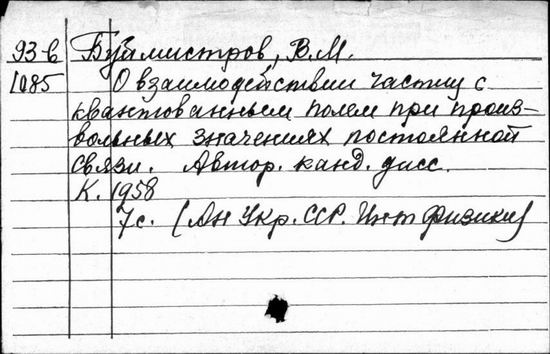 93-6 Буймистров, В.М.
1085 О взаимодействии частиц с
квантованным полем при произ-
вольных значениях постоянной
связи. Автор. канд. дисс.
К. 1958
7с. (Ан Укр. ССР. Инт физики)